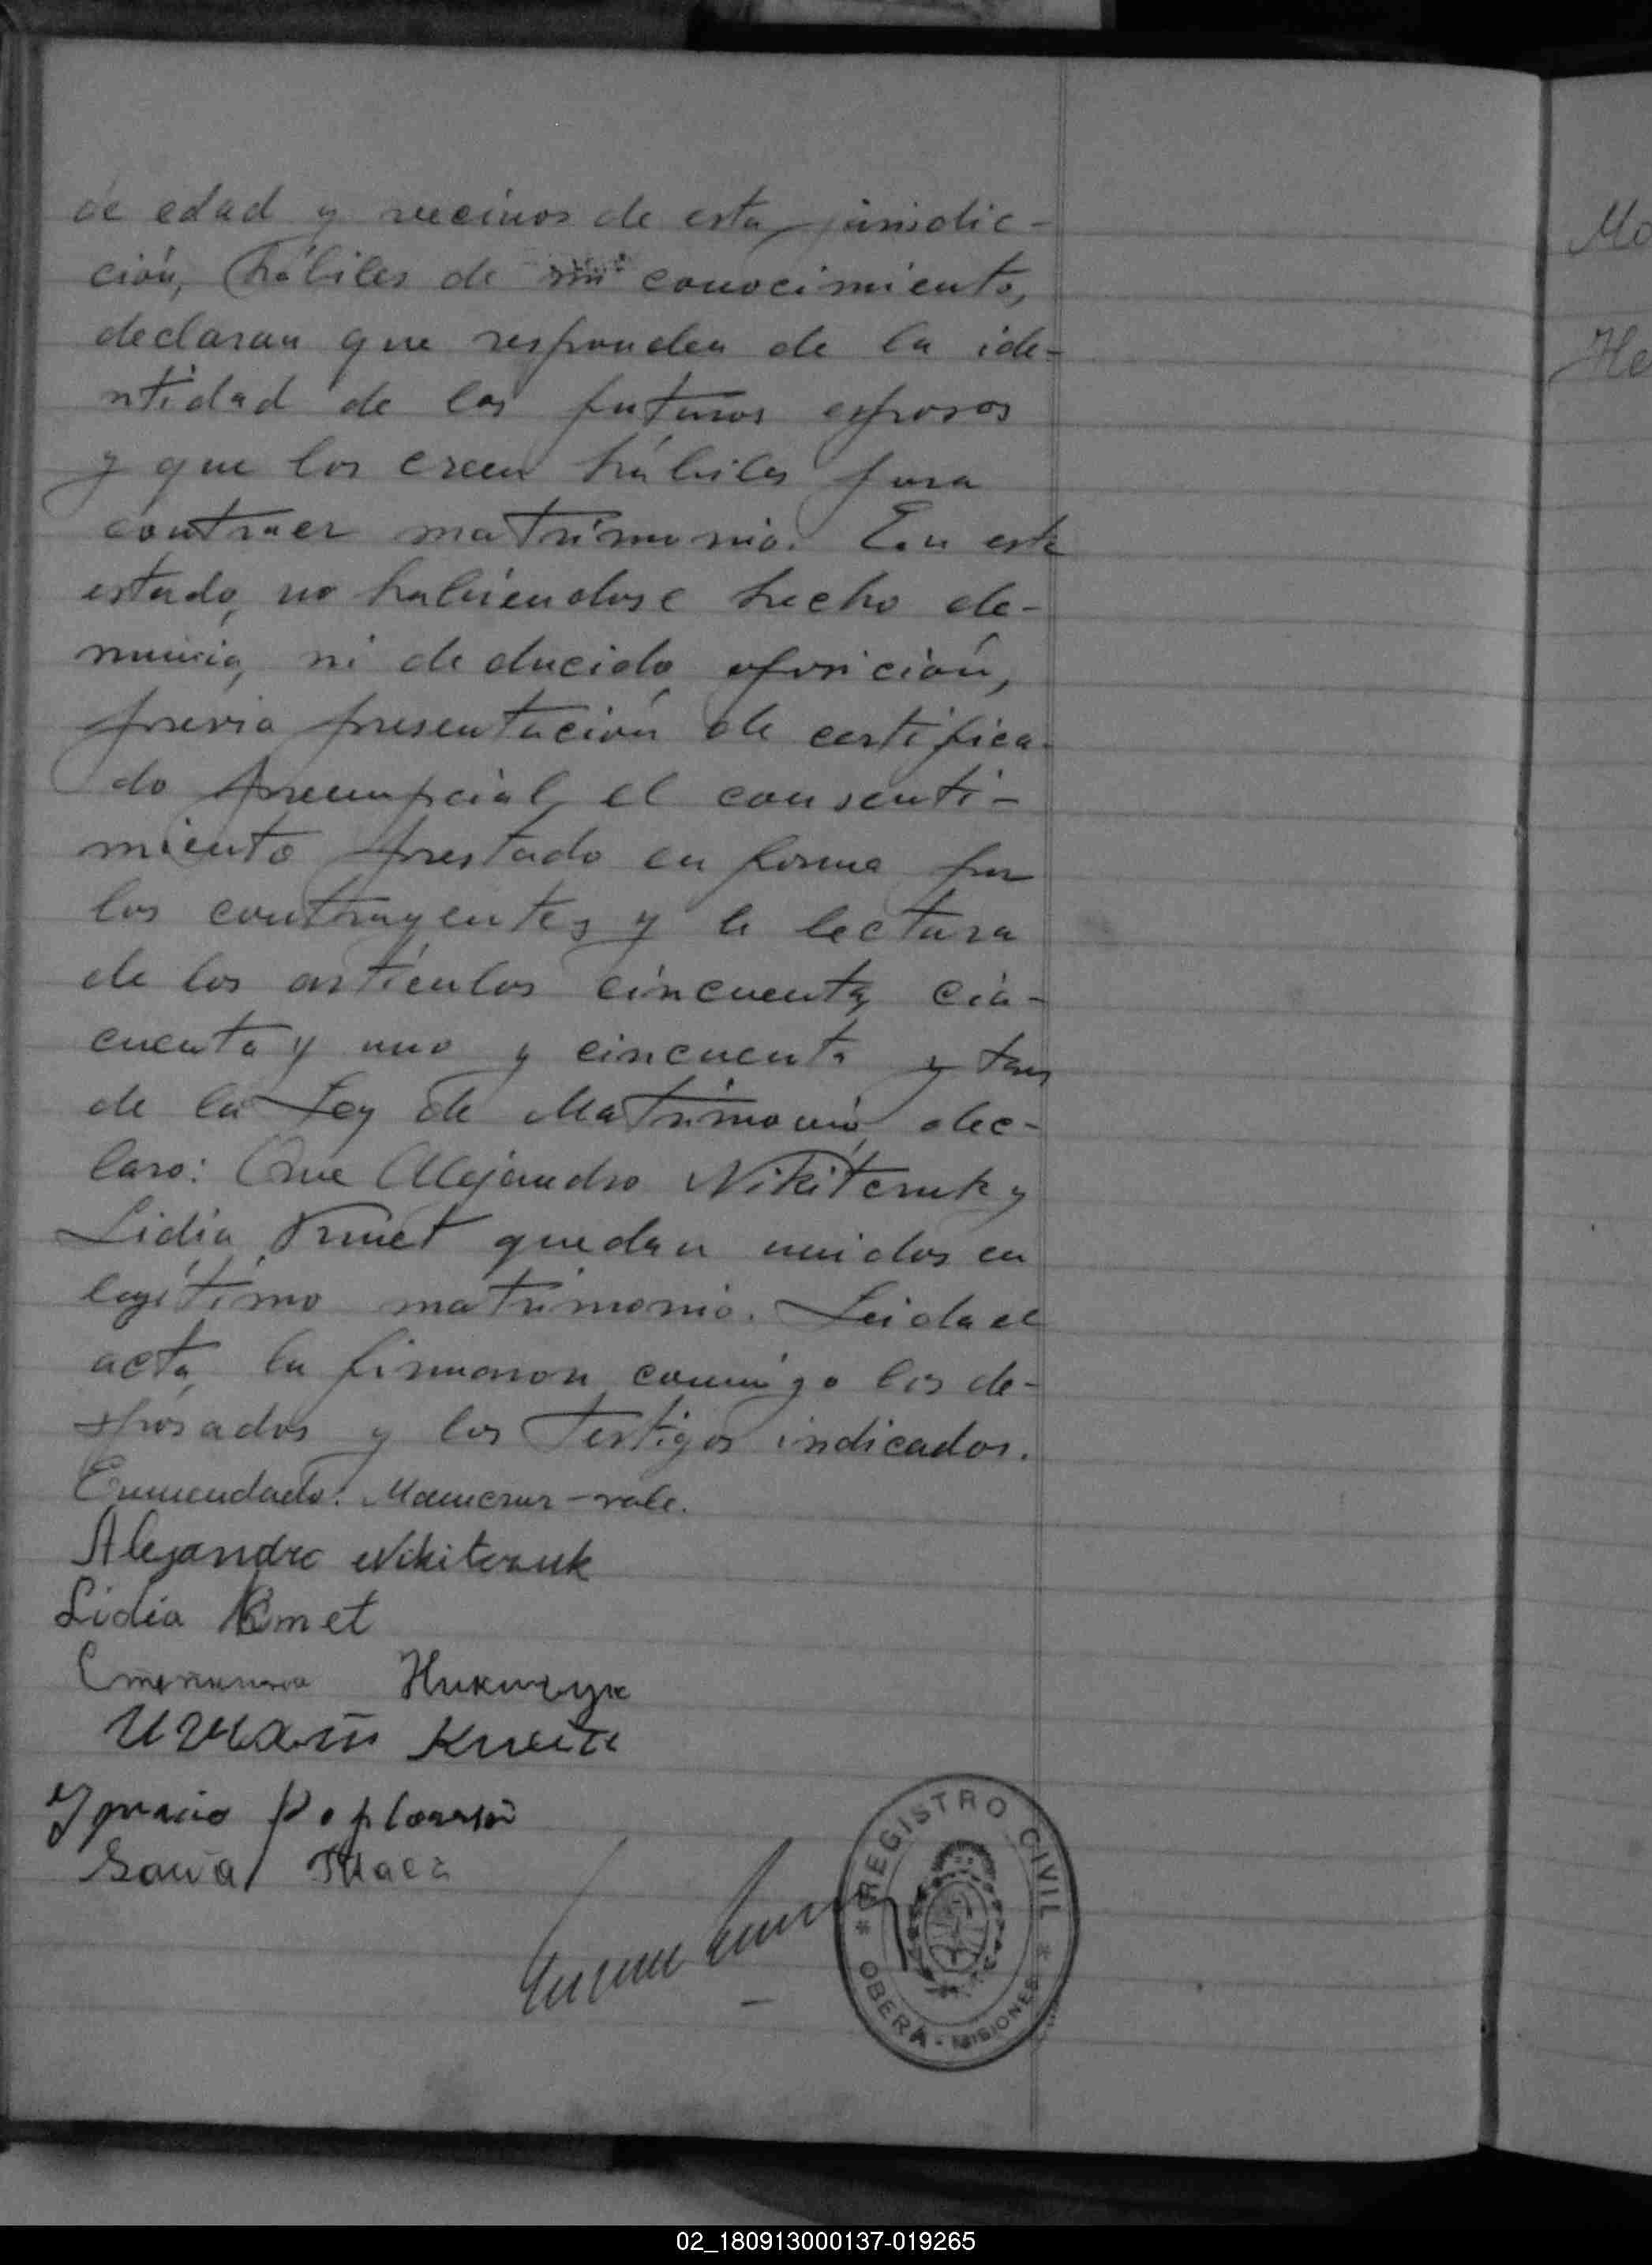 de edad y vecinos de esta jurisdic-
ción, hábiles de mi conocimiento,
declaran que responden de la ide-
ntidad de los futuros esposos
y que los creen hábiles para
contraer matrimonio. En este
estado, no habiéndose hecho de-
nuncia, ni deducido oposición,
previa presentación de certifica-
do prenupcial, el consenti-
miento prestado en forma por
los contrayentes y la lectura
de los artículos cincuenta, cin-
cuenta y uno y cincuenta y tres
de la Ley de Matrimonio, dec-
laro: Que Alejandro Nikitczuk y
Lidia Kmet quedan unidos en
legítimo matrimonio. Leida el
acta, la firmaron conmigo los de-
sposados y los testigos indicados.
Enmendado: -vale.
Alejandro Nikitczuk
Lidia Kmet
Никичук
Игнат Кметь
Ignacio
Sawa
REGISTRO CIVIL
OBERÁ - MISIONES
Mo
He
02_180913000137-019265